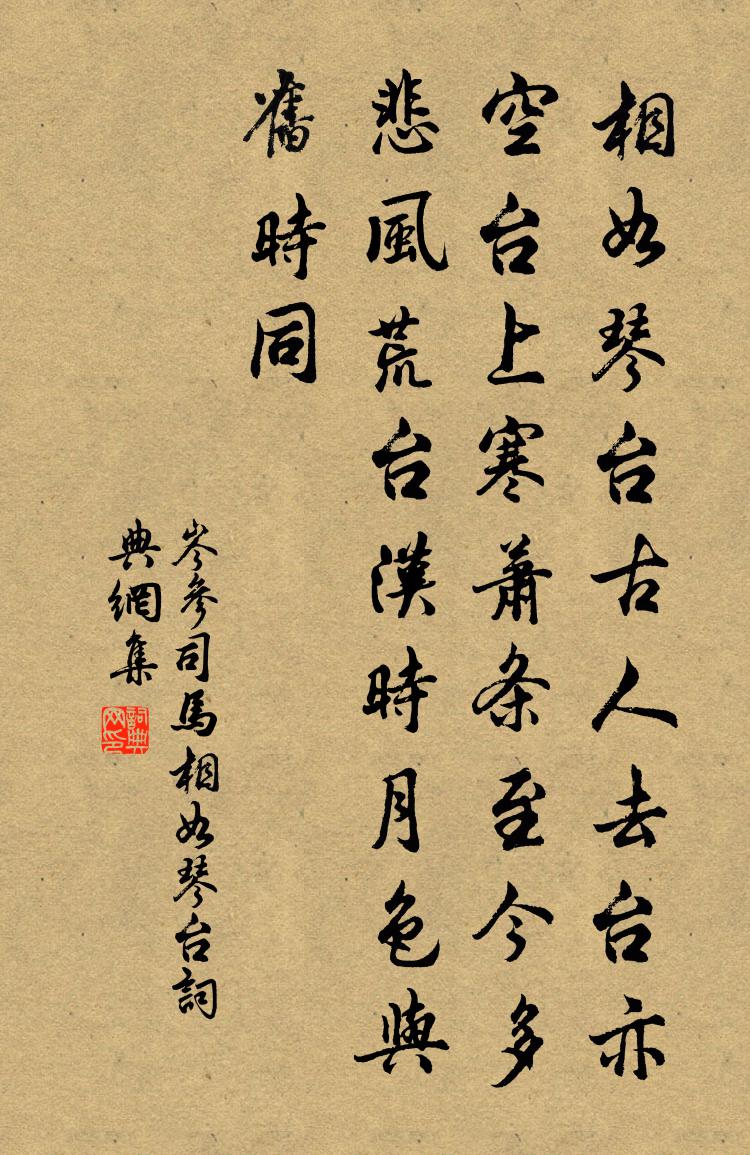 相如琴台古人去台亦
空台上寒蕭条至今多
悲風荒台漢時月色與
舊時同
岑參司馬相如琴台詞
典網集
詞典
网印